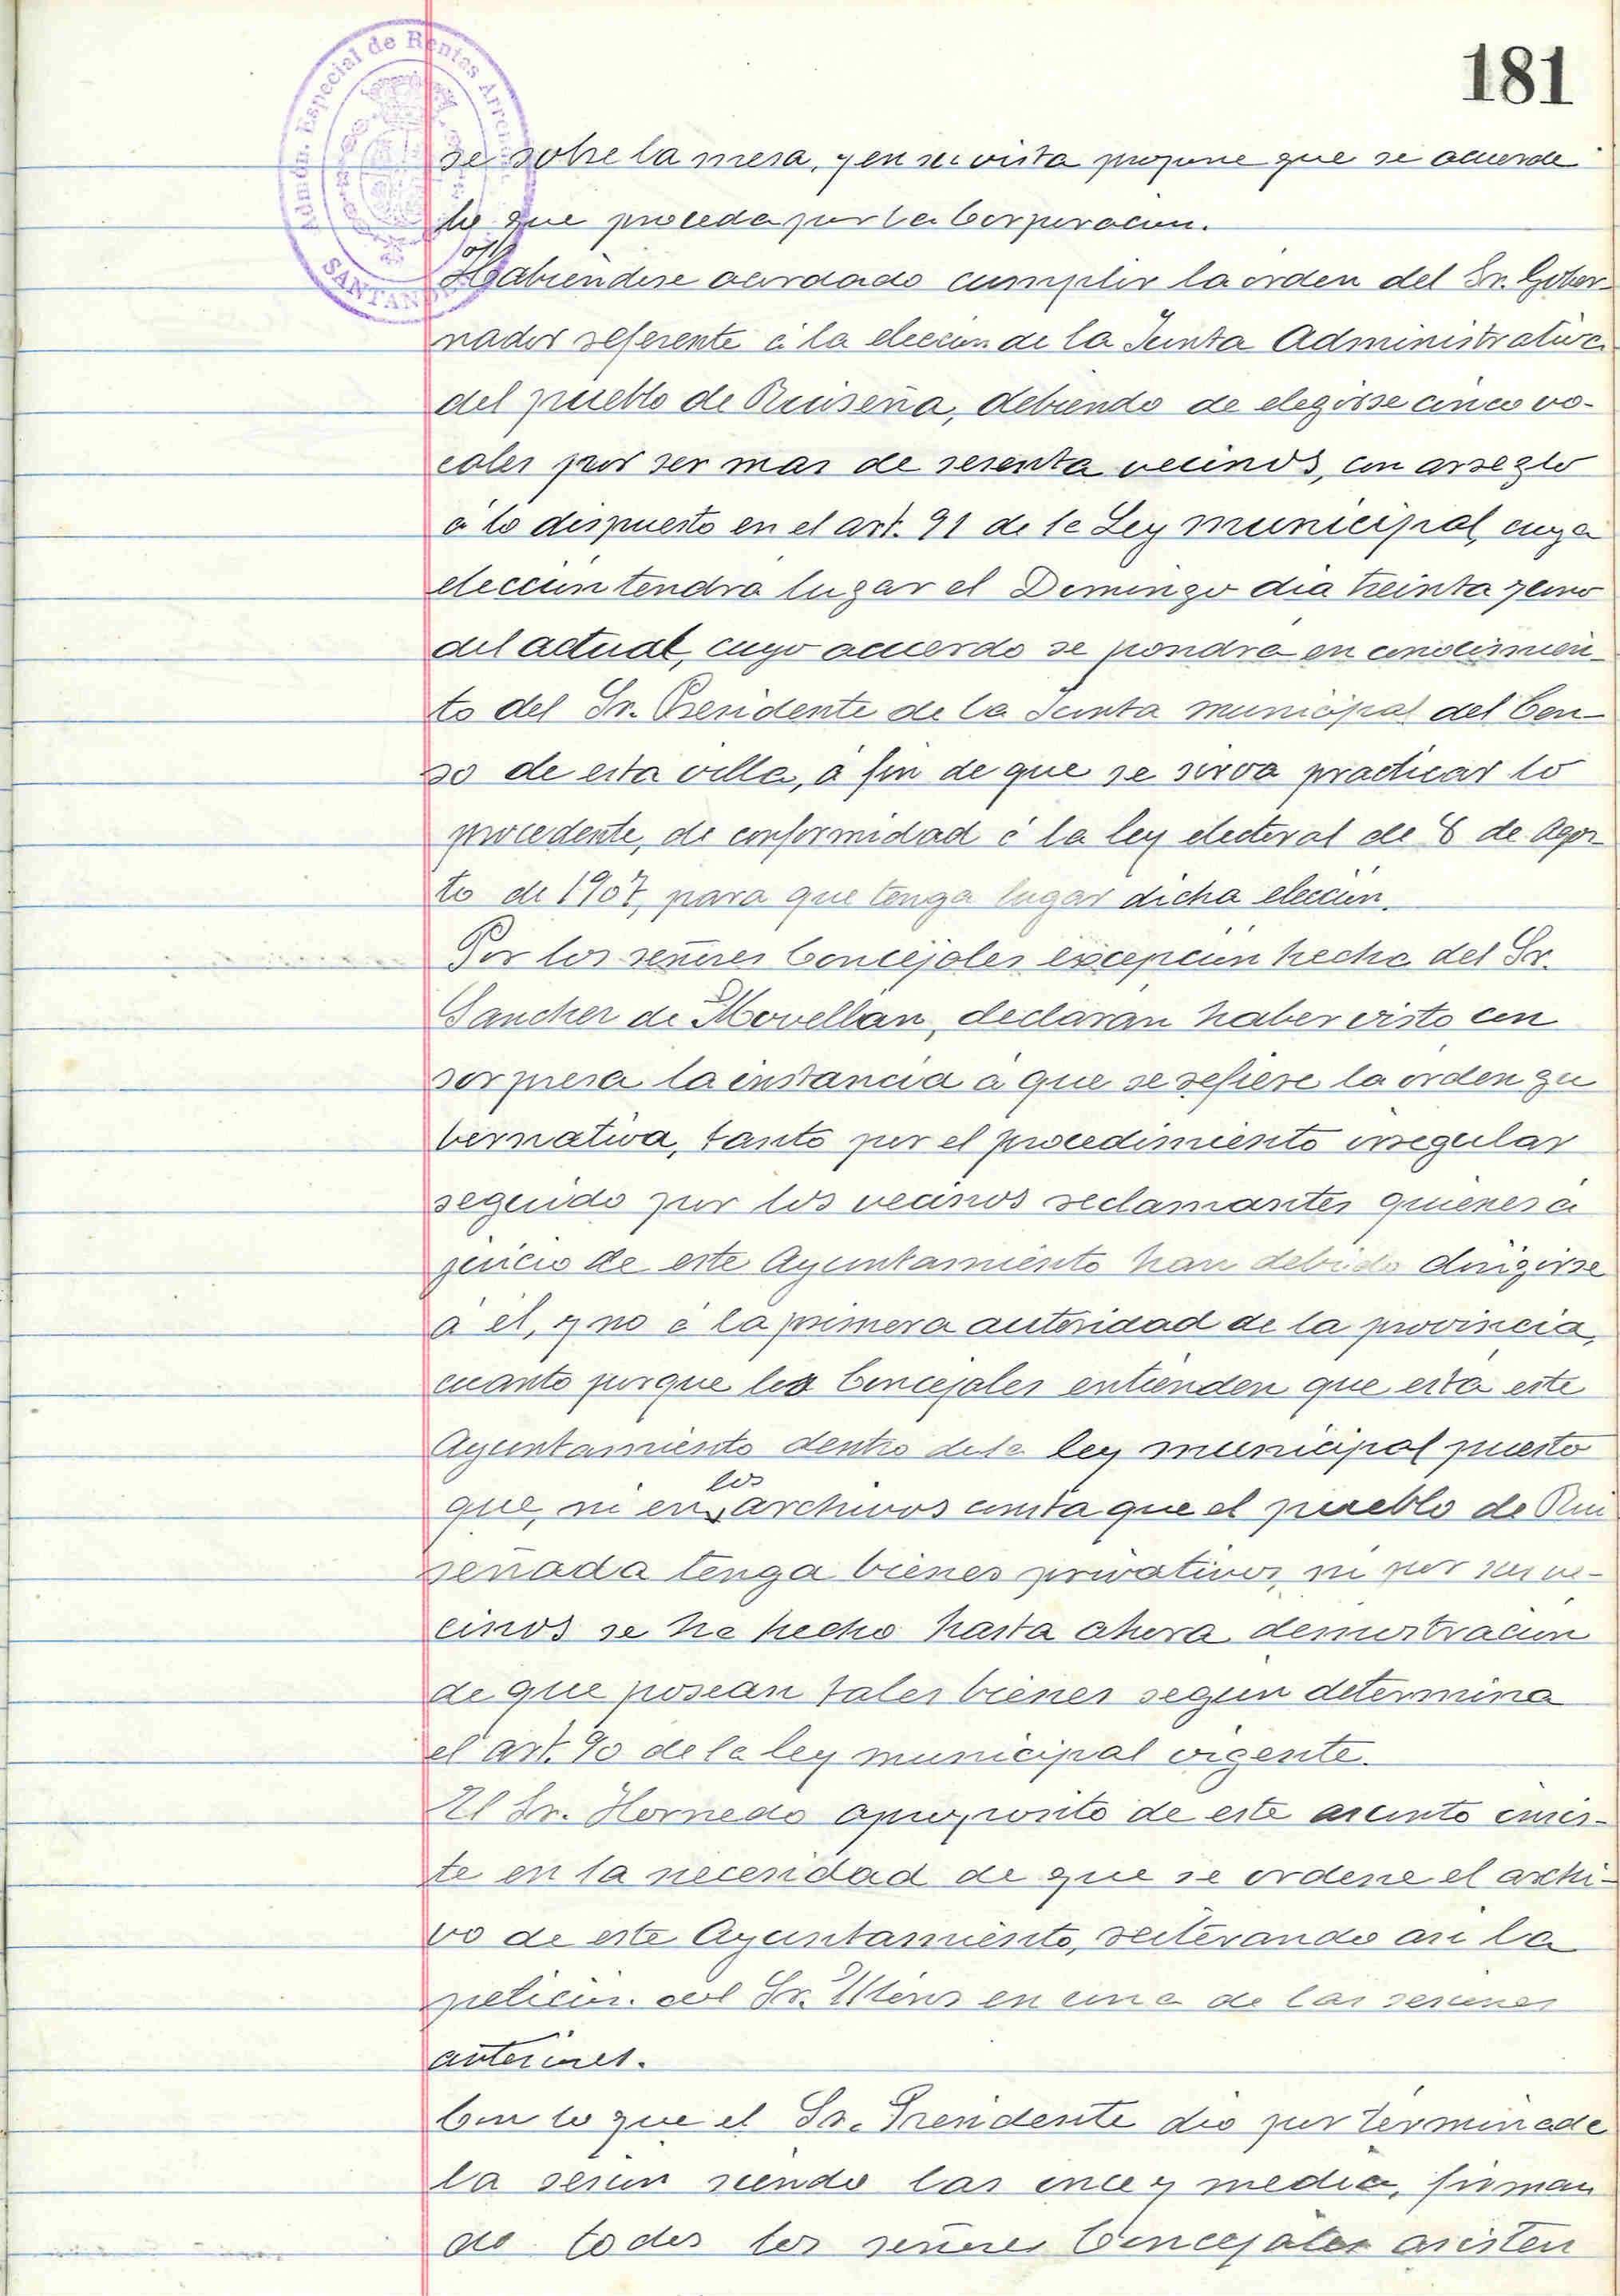 181
Admón. Especial de Rentas Arrend
SANTANDER
se sobre la mesa, y en su vista propone que se acuerde
lo que proceda por la Corporacion.
Habiéndose acordado cumplir la órden del Sr. Gober-
nador referente á la eleccion de la Junta Administrativa
del pueblo de Ruiseña, debiendo de elegirse cinco vo-
cales por ser mas de sesenta vecinos, con arreglo
á lo dispuesto en el art. 91 de la Ley municipal, cuya
elección tendrá lugar el Domingo dia treinta y uno
del actual, cuyo acuerdo se pondrá en conocimien-
to del Sr. Presidente de la Junta municipal del Cen-
so de esta villa, á fin de que se sirva practicar lo
procedente, de conformidad á la ley electoral de 8 de Agos-
to de 1907, para que tenga lugar dicha elección.
Por los señores Concejales excepción hecha del Sr.
Sanchez de Movellán, declarán haber visto con
sorpresa la instancia á que se refiere la órden gu
bernativa, tanto por el procedimiento irregular
seguido por los vecinos reclamantes quienes á
juicio de este Ayuntamiento han debido dirigirse
á él, y no á la primera autoridad de la provincia,
cuanto porque los Concejales entienden que está este
Ayuntamiento dentro de la ley municipal puesto
que, ni en los archivos consta que el pueblo de Rui
señada tenga bienes privativos, ni por sus ve-
cinos se ha hecho hasta ahora demostración
de que posean tales bienes según determina
el art. 90 de la ley municipal vigente.
El Sr. Hornedo aproposito de este asunto insis-
te en la necesidad de que se ordene el archi-
vo de este Ayuntamiento, reiterando asi la
petición del Sr. en una de las sesiones
anteriores.
Con lo que el Sr. Presidente dió por terminada
la sesión siendo las once y media, firman
do todos los señores Concejales asisten